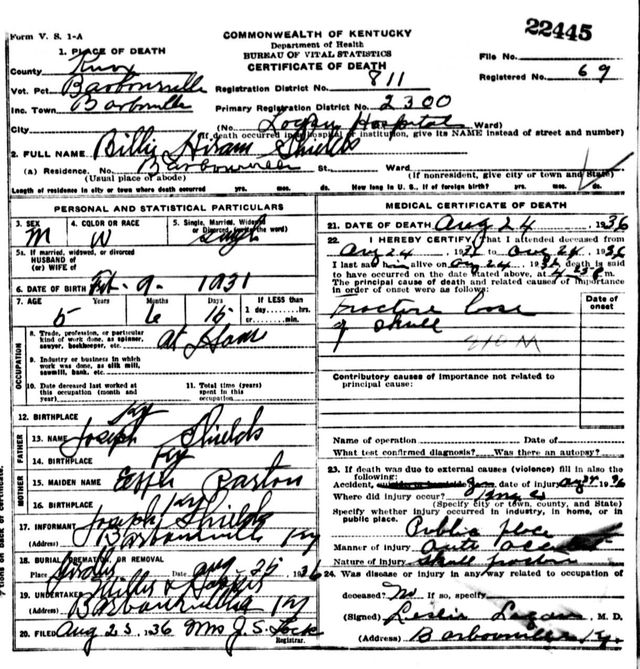 Form V. S. 1-A
COMMONWEALTH OF KENTUCKY
Department of Health
BUREAU OF VITAL STATISTICS
CERTIFICATE OF DEATH
22445
File No.
Registered No. 69
1. PLACE OF DEATH
County Knox
Vot. Pct. Barbourville
Registration District No. 811
Inc. Town Barbourville
Primary Registration District No. 2300
City
(No. Logan Hospital Ward)
(If death occurred in a hospital or institution, give its NAME instead of street and number)
2. FULL NAME Billie Hiram Shields
(a) Residence. No. Barbourville St., Ward.
(Usual place of abode)
(If nonresident, give city or town and State)
Length of residence in city or town where death occurred yrs. mos. ds. How long in U. S., if of foreign birth? yrs. mos. ds.
PERSONAL AND STATISTICAL PARTICULARS
3. SEX M
4. COLOR OR RACE W
5. Single, Married, Widowed or Divorced (write the word) Single
5a. If married, widowed, or divorced
HUSBAND of
(or) WIFE of
6. DATE OF BIRTH Feb - 9 - 1931
7. AGE 5 Years 6 Months 15 Days
If LESS than
1 day, hrs.
or min.
OCCUPATION
8. Trade, profession, or particular
kind of work done, as spinner,
sawyer, bookkeeper, etc. at Home
9. Industry or business in which
work was done, as silk mill,
sawmill, bank, etc.
10. Date deceased last worked at
this occupation (month and
year)
11. Total time (years)
spent in this
occupation
12. BIRTHPLACE Ky
FATHER
13. NAME Joseph Shields
14. BIRTHPLACE Ky
MOTHER
15. MAIDEN NAME Barton
16. BIRTHPLACE Ky
17. INFORMANT Joseph Shields
(Address) Barbourville Ky
18. BURIAL, CREMATION, OR REMOVAL
Place Date Aug 25 1936
19. UNDERTAKER
(Address) Barbourville Ky
20. FILED Aug 25 1936 Mrs J. S. Lock
Registrar.
MEDICAL CERTIFICATE OF DEATH
21. DATE OF DEATH Aug 24, 1936
22. I HEREBY CERTIFY, That I attended deceased from
Aug 24, 1936 to Aug 24, 1936
I last saw him alive on Aug 24, 1936, death is said
to have occurred on the date stated above, at m.
The principal cause of death and related causes of importance
in order of onset were as follows:
Date of
onset
Fracture base
of skull
Contributory causes of importance not related to
principal cause:
Name of operation Date of
What test confirmed diagnosis? Was there an autopsy?
23. If death was due to external causes (violence) fill in also the
following:
Accident, Date of injury Aug 24 1936
Where did injury occur? Knox Co
(Specify city or town, county, and State)
Specify whether injury occurred in industry, in home, or in
public place.
Public place
Manner of injury Auto accident
Nature of injury Skull fracture
24. Was disease or injury in any way related to occupation of
deceased? No If so, specify
(Signed) Leslie Logan, M. D.
(Address) Barbourville Ky.